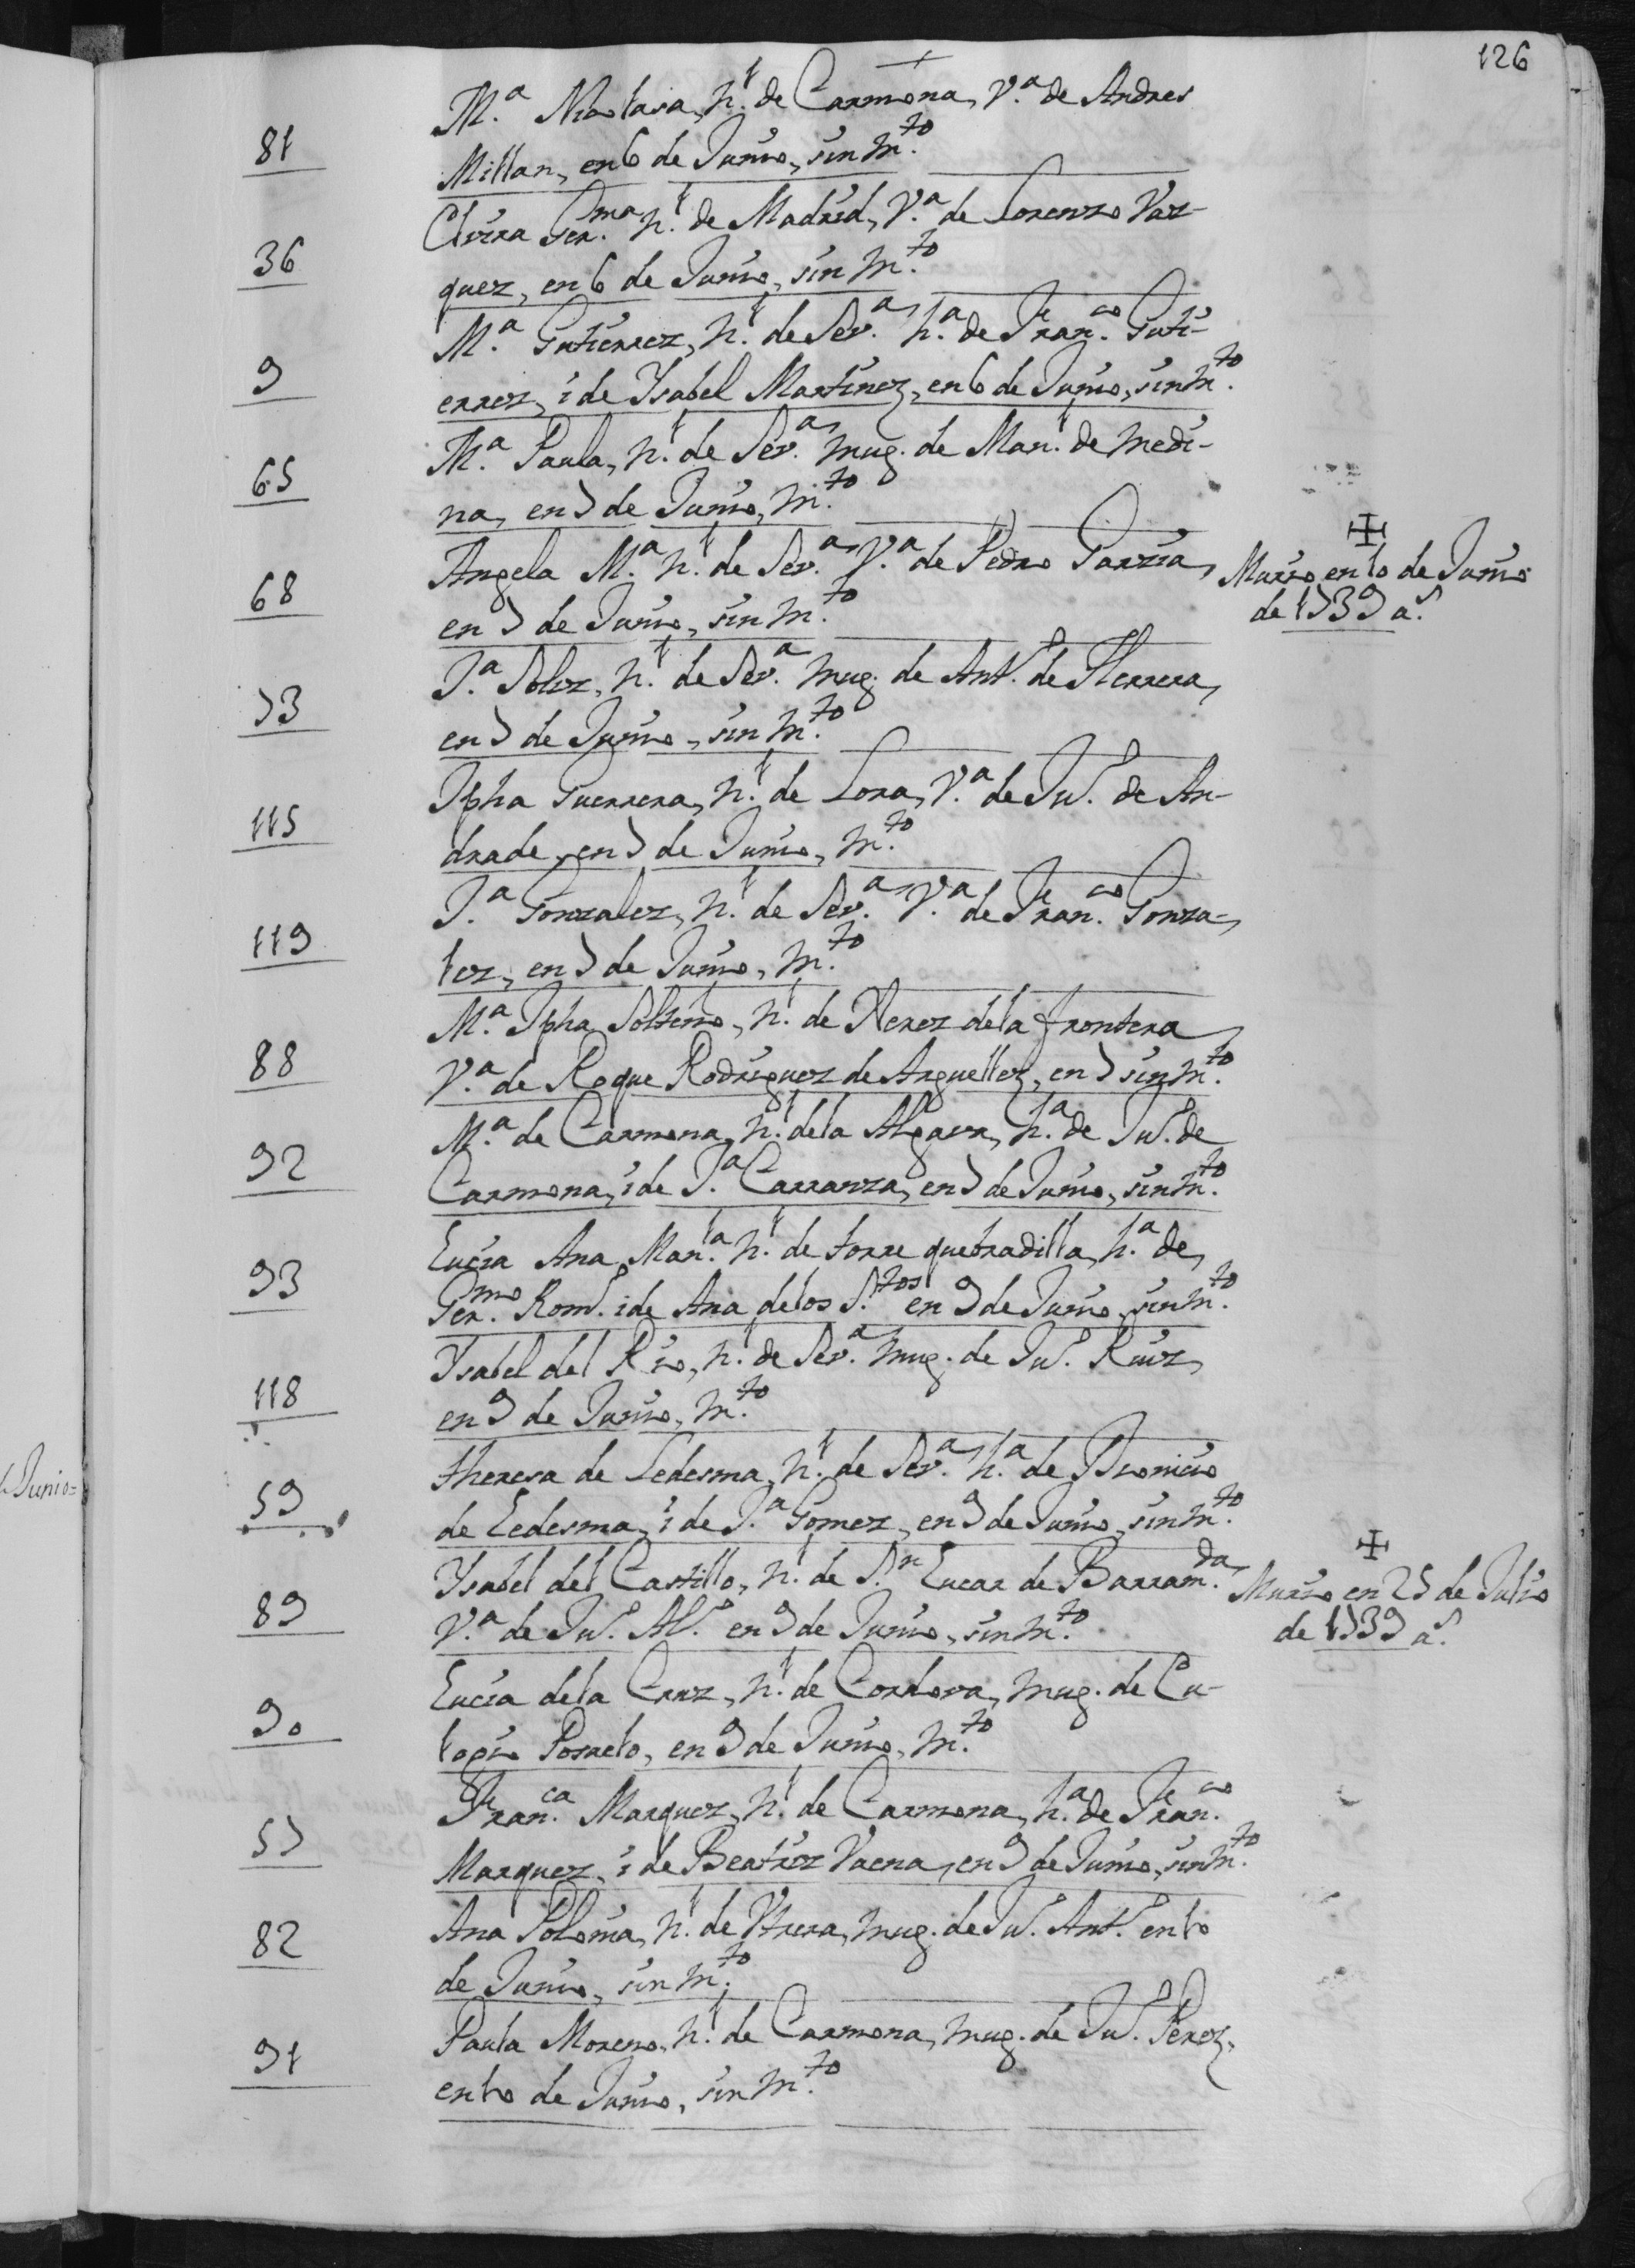 126
M.ª Nicolasa, n.l de Carmona, V.ª de Andres
81 Millan, en 6 de Junio, sin m.to
Elvira Ger.ma n.l de Madrid, V.ª de Lorenzo Vaz-
36 quez, en 6 de Junio, sin m.to
M.ª Gutierrez, n.l de Sev.ª h.ª de Fran.co Guti-
9 errez, i de Ysabel Martinez, en 6 de Junio, sin m.to
M.ª Paula, n.l de Sev.ª mug. de Man.l de Medi-
65 na, en 7 de Junio, m.to
Angela M.ª n.l de Sev.ª V.ª de Pedro Garzia,
68 en 7 de Junio, sin m.to
Murio en 10 de Junio
de 1739 a.s
J.ª Solez, n.l de Sev.ª mug. de Ant.º de Herrera,
73 en 7 de Junio, sin m.to
Jpha Guerrera, n.l de Lora, V.ª de Ju.º de An-
115 drade, en 7 de Junio, m.to
J.ª Gonzalez, n.l de Sev.ª V.ª de Fran.co Gonza-
119 lez, en 7 de Junio, m.to
M.ª Jpha Solterio, n.l de Xerez de la frontera
88 V.ª de Roque Rodriguez de Arguellez, en 7 sin m.to
M.ª de Carmona, n.l de la Algava, h.ª de Ju.º de
92 Carmona, i de J.ª Carranza, en 7 de Junio, sin m.to
Lucia Ana Mar.ª n.l de torre quebradilla, h.ª de
93 Ger.mo Rom.º i de Ana de los S.tos en 9 de Junio, sin m.to
Ysabel del Rio, n.l de Sev.ª mug. de Ju.º Ruiz,
118 en 9 de Junio, m.to
theresa de Ledesma, n.l de Sev.ª h.ª de Dionicio
59 de Ledesma, i de J.ª Gomez, en 9 de Junio, sin m.to
Ysabel del Castillo, n.l de S.n Lucar de Barram.da
89 V.ª de Ju.º Al.º en 9 de Junio, sin m.to
Murio en 25 de Julio
de 1739 a.s
Lucia de la Cruz, n.l de Cordova, mug. de Eu-
90 logio Poruelo, en 9 de Junio, m.to
Fran.ca Marquez, n.l de Carmona, h.ª de Fran.co
57 Marquez, i de Beatriz Vaena, en 9 de Junio, sin m.to
Ana Poloña, n.l de Utrera, mug. de Ju.º Ant.º en 10
82 de Junio, sin m.to
Paula Moreno, n.l de Carmona, mug. de Ju.º Perez,
91 en 10 de Junio, sin m.to
Junio=